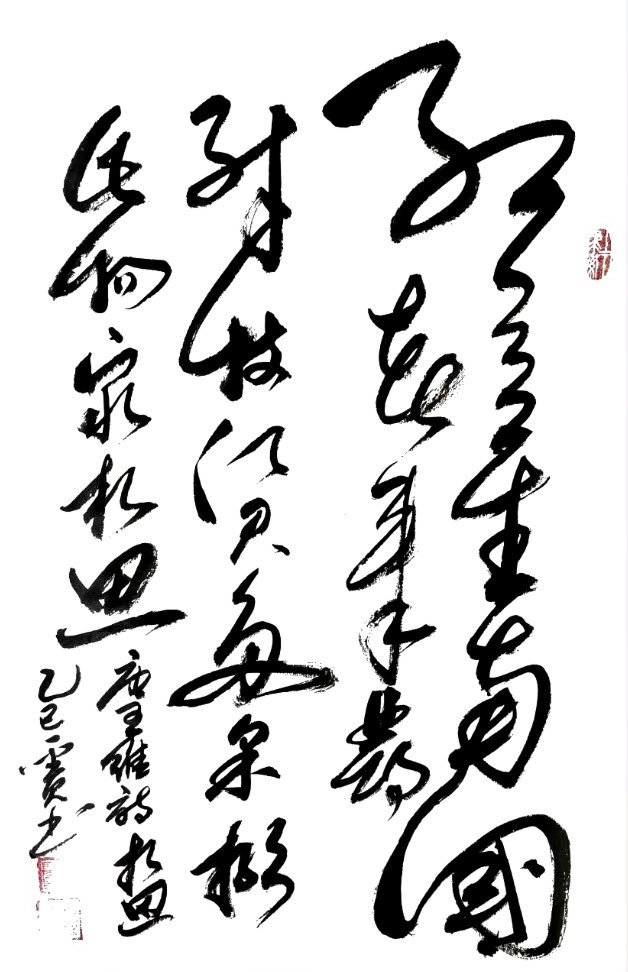 紅豆生南國
春來發
幾枝願君多采擷
此物最相思
唐王維詩相思
乙巳 書